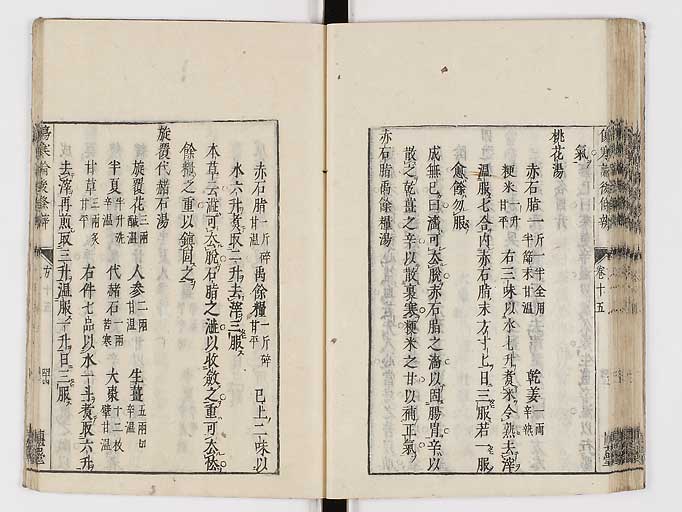 氣
桃花湯
赤石脂一斤一半全用一半篩末甘温 乾姜一兩辛熱
粳米一升甘平 右三味以水七升煮米令熟去滓
温服七合內赤石脂末方寸匕日三服若一服
愈餘勿服
成無已曰濇可去脫赤石脂之濇以固腸胃辛以
散之乾薑之辛以散裏寒粳米之甘以補正氣
赤石脂禹餘糧湯
赤石脂一斤碎甘温 禹餘糧一斤碎甘平 已上二味以
水六升煮取二升去滓三服
本草云濇可去脫石脂之濇以收斂之重可去怯
餘糧之重以鎮固之
旋覆代赭石湯
旋覆花三兩鹹温 人參二兩甘温 生薑五兩切辛温
半夏半升洗辛温 代赭石一兩苦寒 大棗十二枚擘甘温
甘草三兩炙甘平 右件七品以水一斗煮取六升
去滓再煎取三升温服一升日三服
傷寒論後條辨
方十五
卷十五